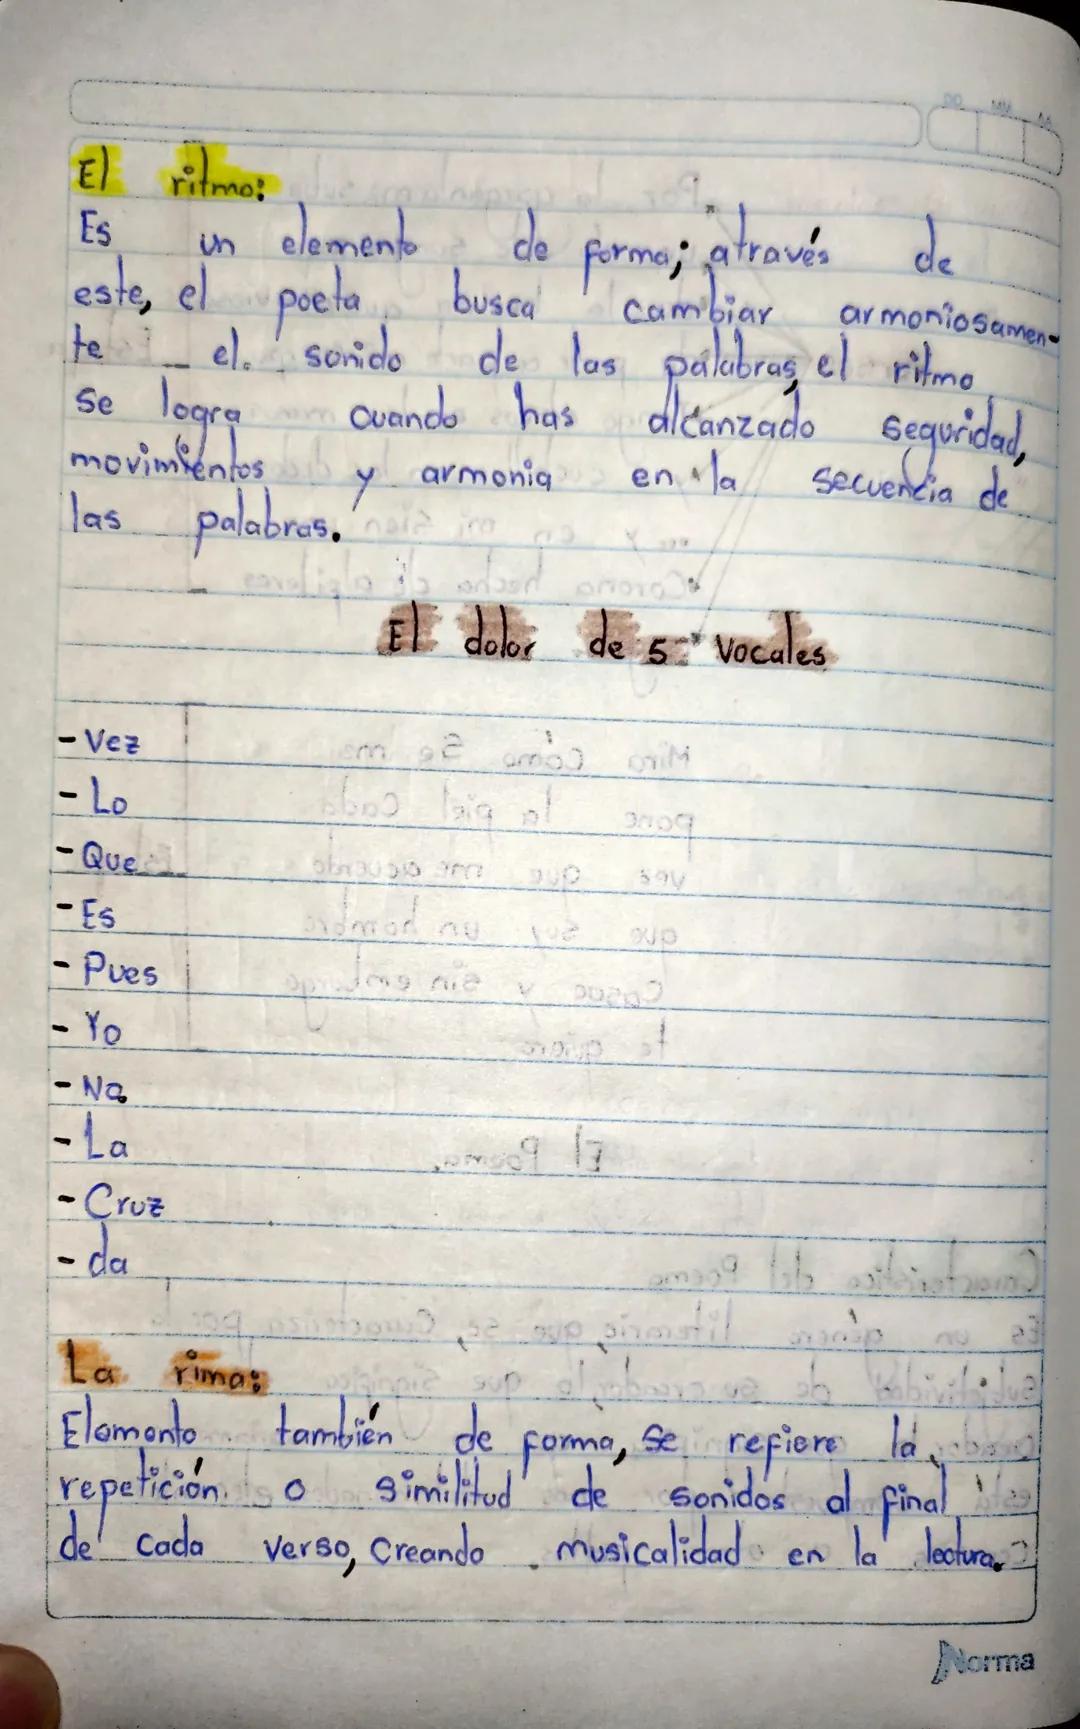 El ritmo:
Es un elemento de forma; através de
este, el poeta busca cambiar armoniosamen-
te el sonido de las palabras, el ritmo
se logra cuando has alcanzado seguridad,
movimientos y armonia en la secuencia de
las palabras.
El dolor de 5 vocales
- Vez
- Lo
- Que
- Es
- Pues
- Yo
- No
- La
- Cruz
- da
La rima:
Elemento también de forma, se refiere la
repetición o similitud de sonidos al final
de cada verso, creando musicalidad en la lectura.
Norma